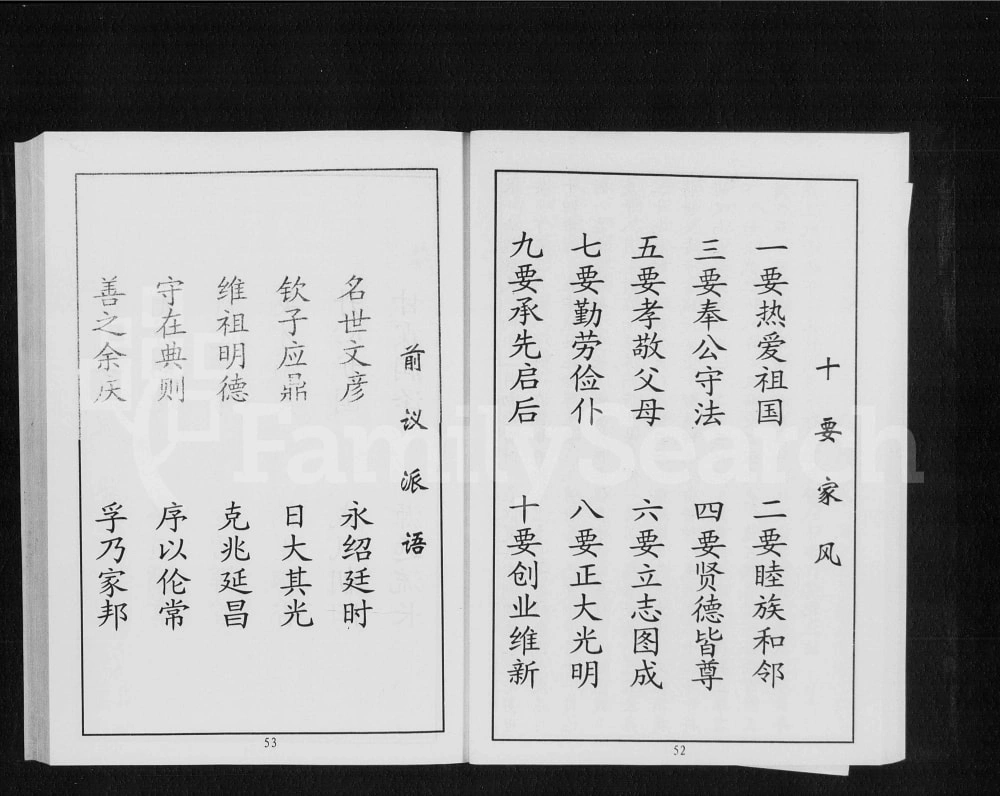 十要家风
一要热爱祖国 二要睦族和邻
三要奉公守法 四要贤德皆尊
五要孝敬父母 六要立志图成
七要勤劳俭仆 八要正大光明
九要承先启后 十要创业维新
52
前议派语
名世文彦 永绍廷时
钦子应鼎 日大其光
维祖明德 克兆延昌
守在典则 序以伦常
善之余庆 孚乃家邦
53
FamilySearch